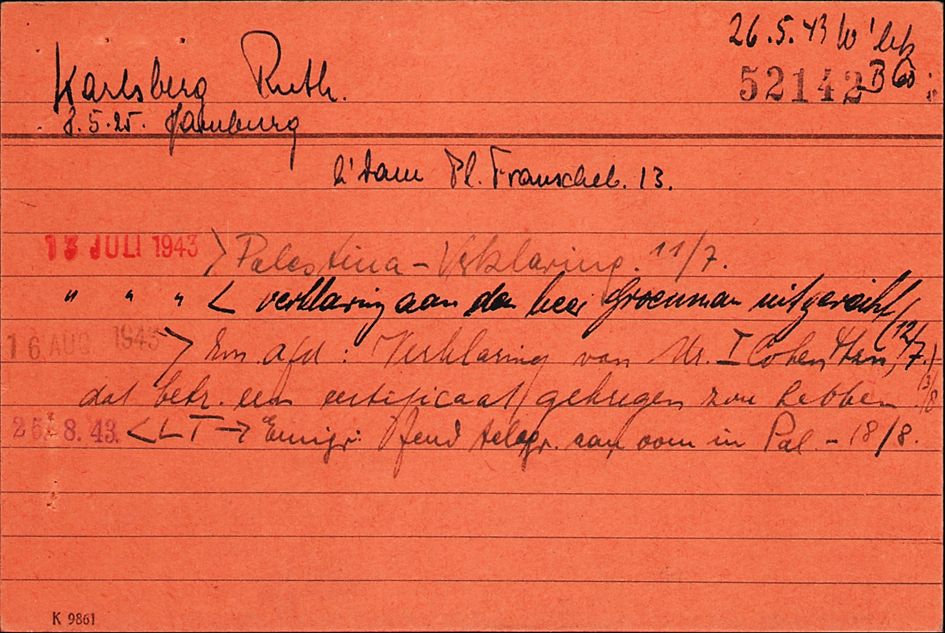 26.5.43 W'bk
Karlsberg Ruth.
52142 B 60
8.5.25. Hamburg
A'dam Pl. Franschel. 13.
13 JULI 1943 > Palestina - Verklaring. 11/7.
" " " < verklaring aan den heer Groenman uitgereikt 12/7.
16 AUG 1943 > Em. afd: Verklaring van Mr. I Cohen
dat betr. een certificaat gekregen zou hebben 13/8
26. 8. 43. < L T → Emigr: telegr. aan oom in Pal - 18/8.
K 9861